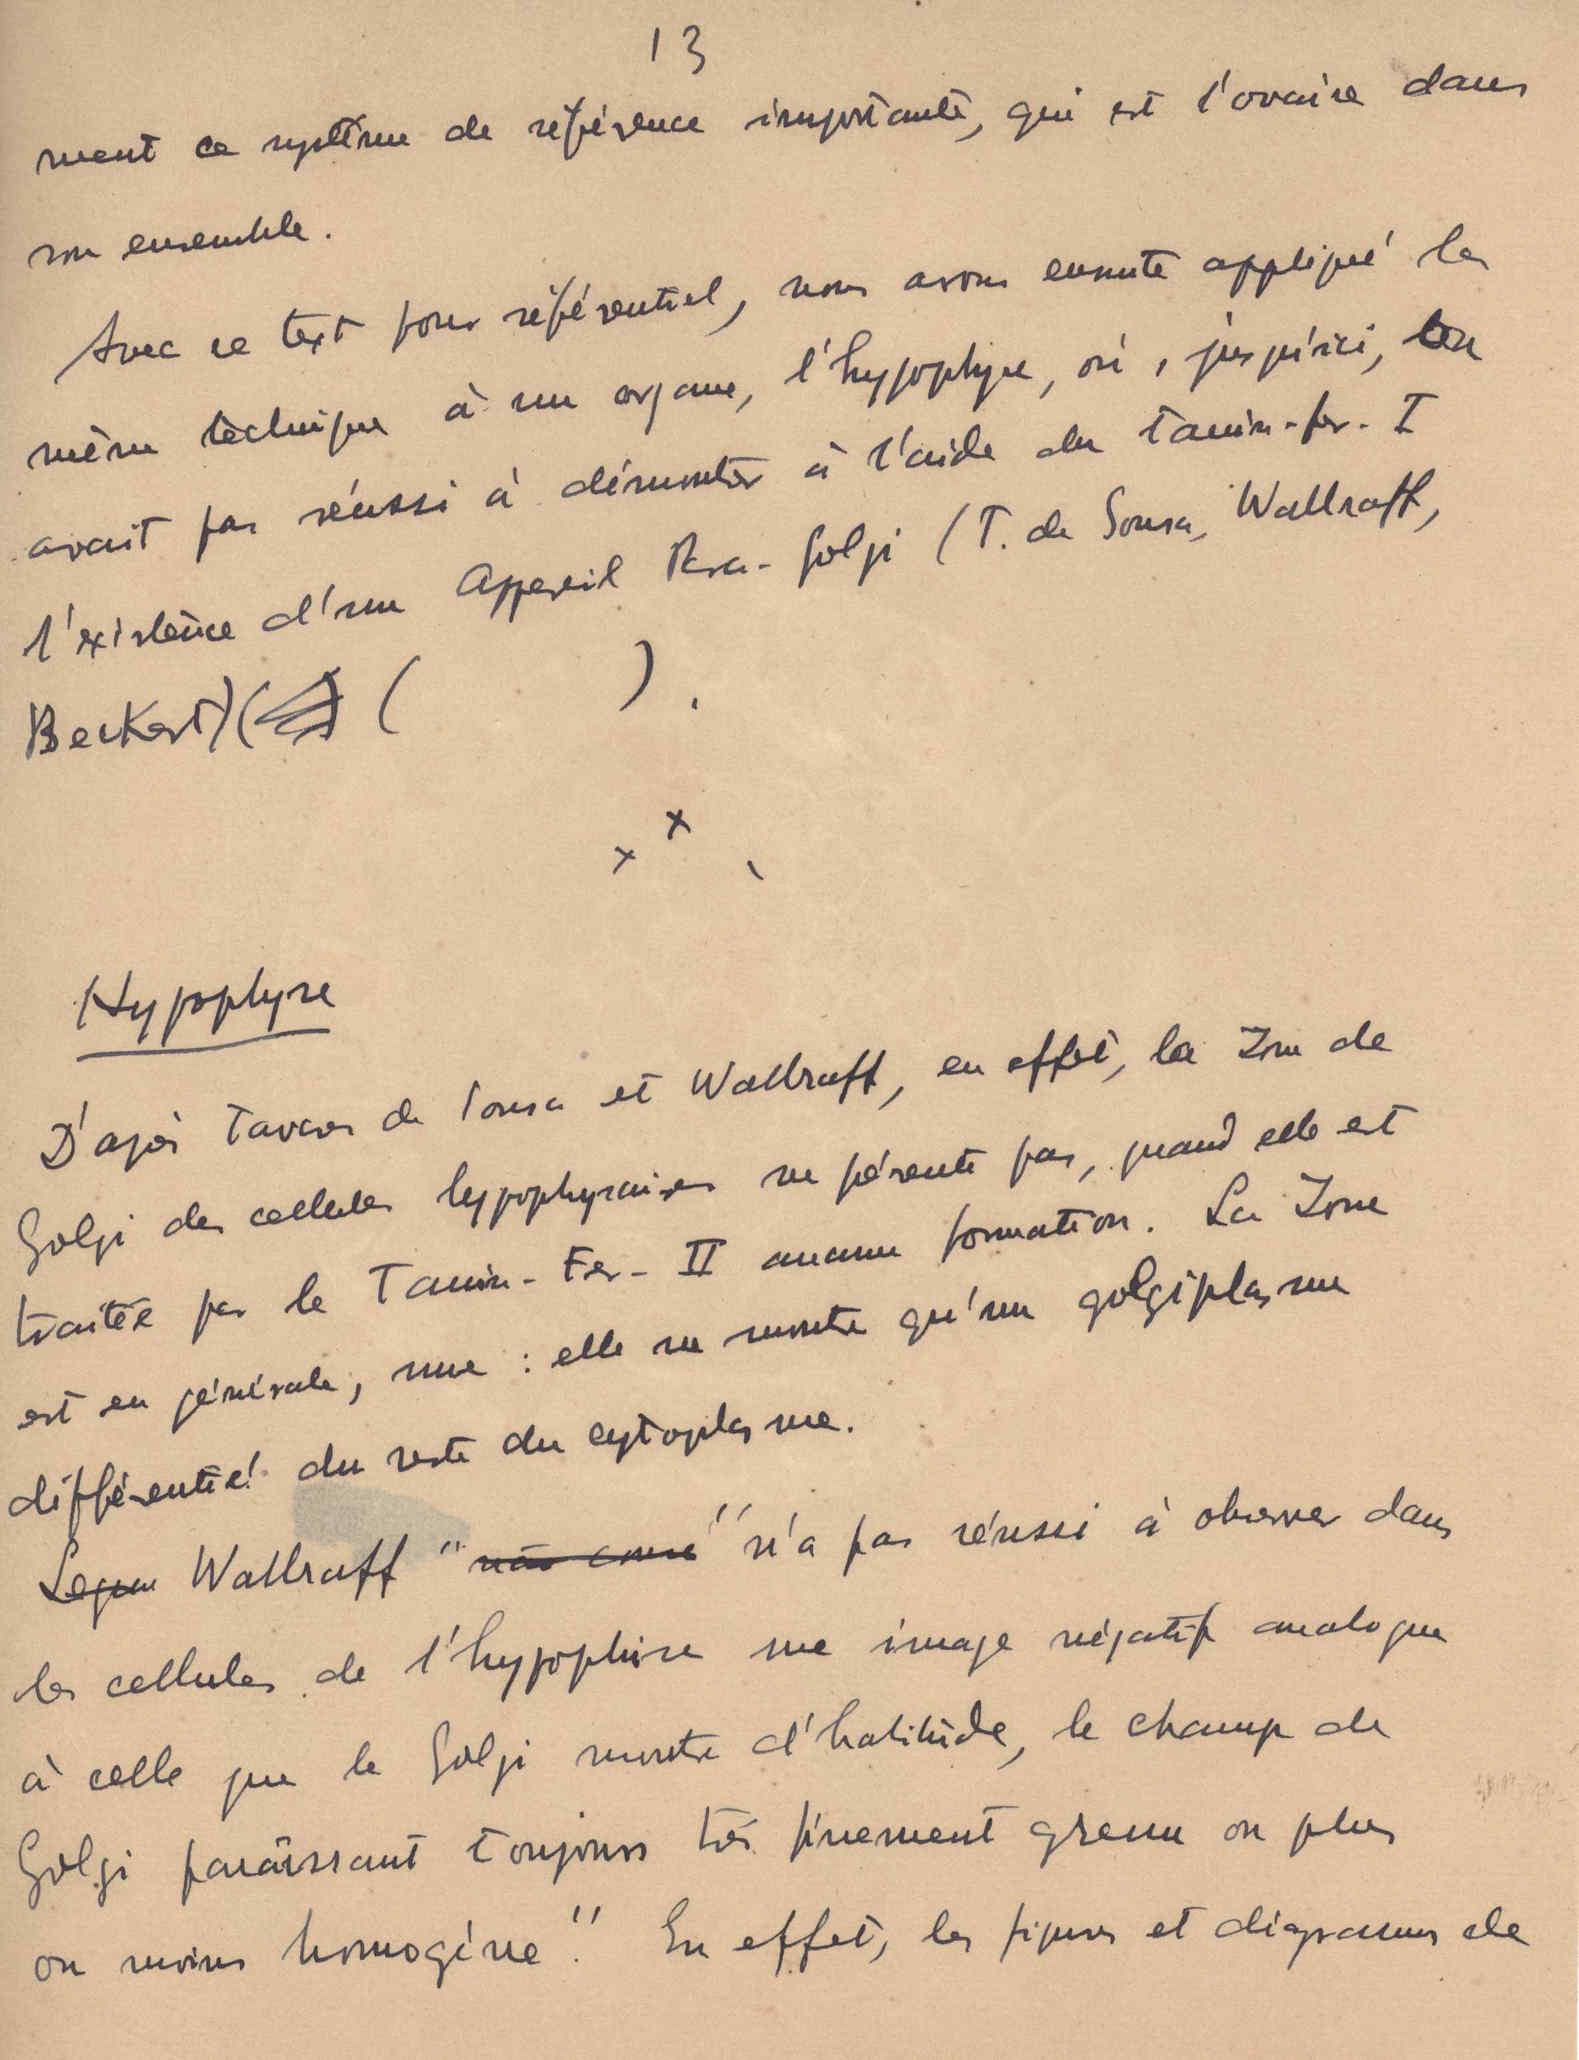 13
ment ce système de référence importante, qui est l'ovaire dans
son ensemble.
Avec ce text pour référentiel, nous avons ensuite appliqué la
même technique à un organe, l'hypophyse, où, jusqu'ici, on
avait pas réussi à démontrer à l'aide du tanin-fer-I
l'existence d'un Appareil Para-Golgi (T. de Sousa, Wallraff,
Beckert) ( ).
x x
Hypophyse
D'après Tavares de Sousa et Wallraff, en effet, la Zone de
Golgi des cellules hypophysaires ne présente pas, quand elle est
traitée par le Tanin-Fer-II aucune formation. La Zone
est en générale, nue : elle ne montre qu'un golgiplasme
différentié du reste du cytoplasme.
Wallraff "n'a pas réussi à observer dans
les cellules de l'hypophise une image négatif analogue
à celle que le Golgi montre d'habitude, le champ de
Golgi paraîssant toujours très finement grenu ou plus
ou moins homogène". En effet, les figures et diagrammes de